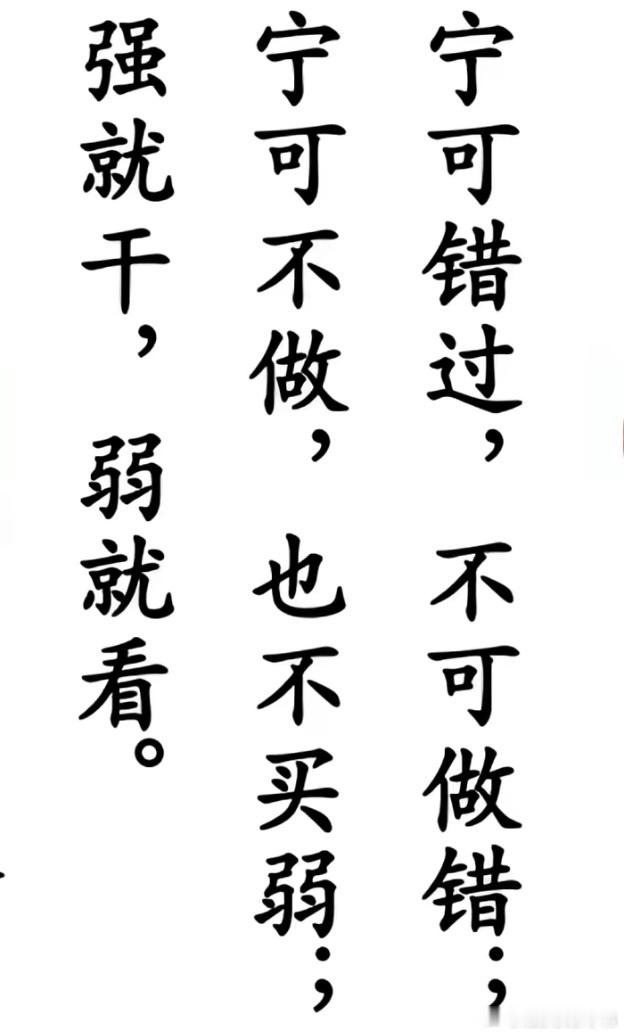 宁可错过，不可做错；
宁可不做，也不买弱；
强就干，弱就看。